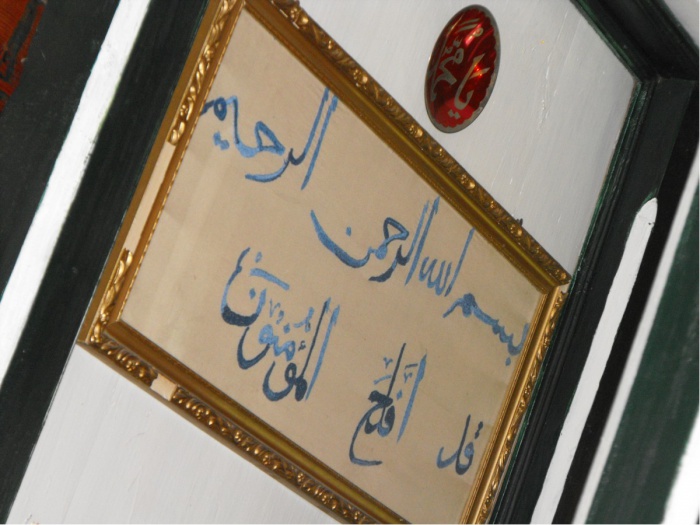 بسم الله الرحمن الرحيم
قد أفلح المؤمنون